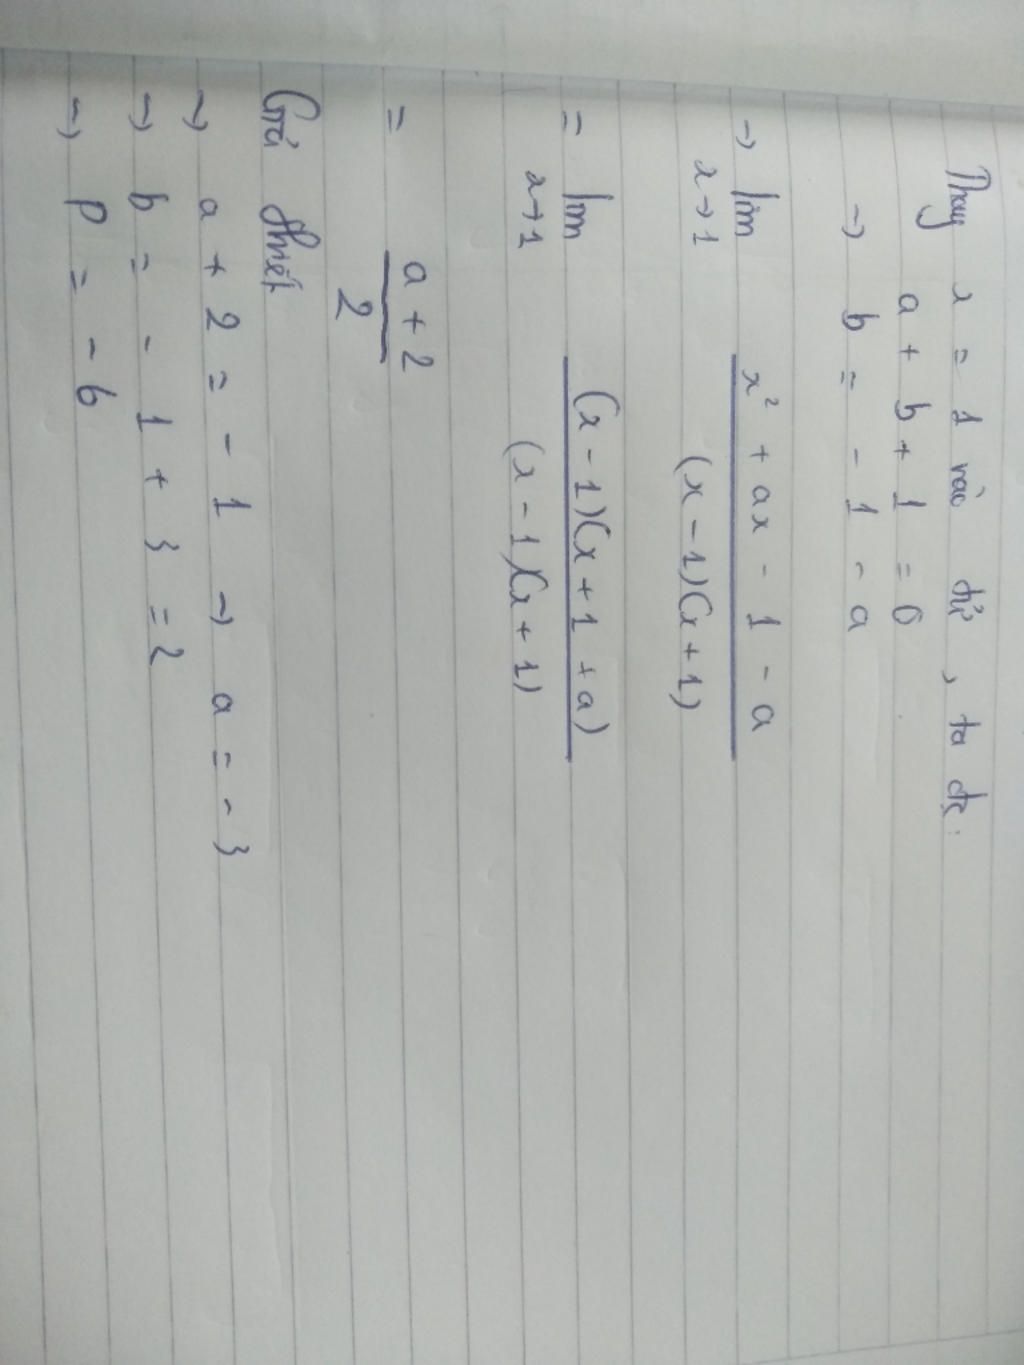 Thay x = 1 vào tử, ta đc:
a + b + 1 = 0
→ b = - 1 - a
→ lim x² + ax - 1 - a
x→1 (x - 1)(x + 1)
= lim (x - 1)(x + 1 + a)
x→1 (x - 1)(x + 1)
= a + 2
2
Giả thiết
→ a + 2 = - 1 → a = - 3
→ b = - 1 + 3 = 2
→ P = - 6